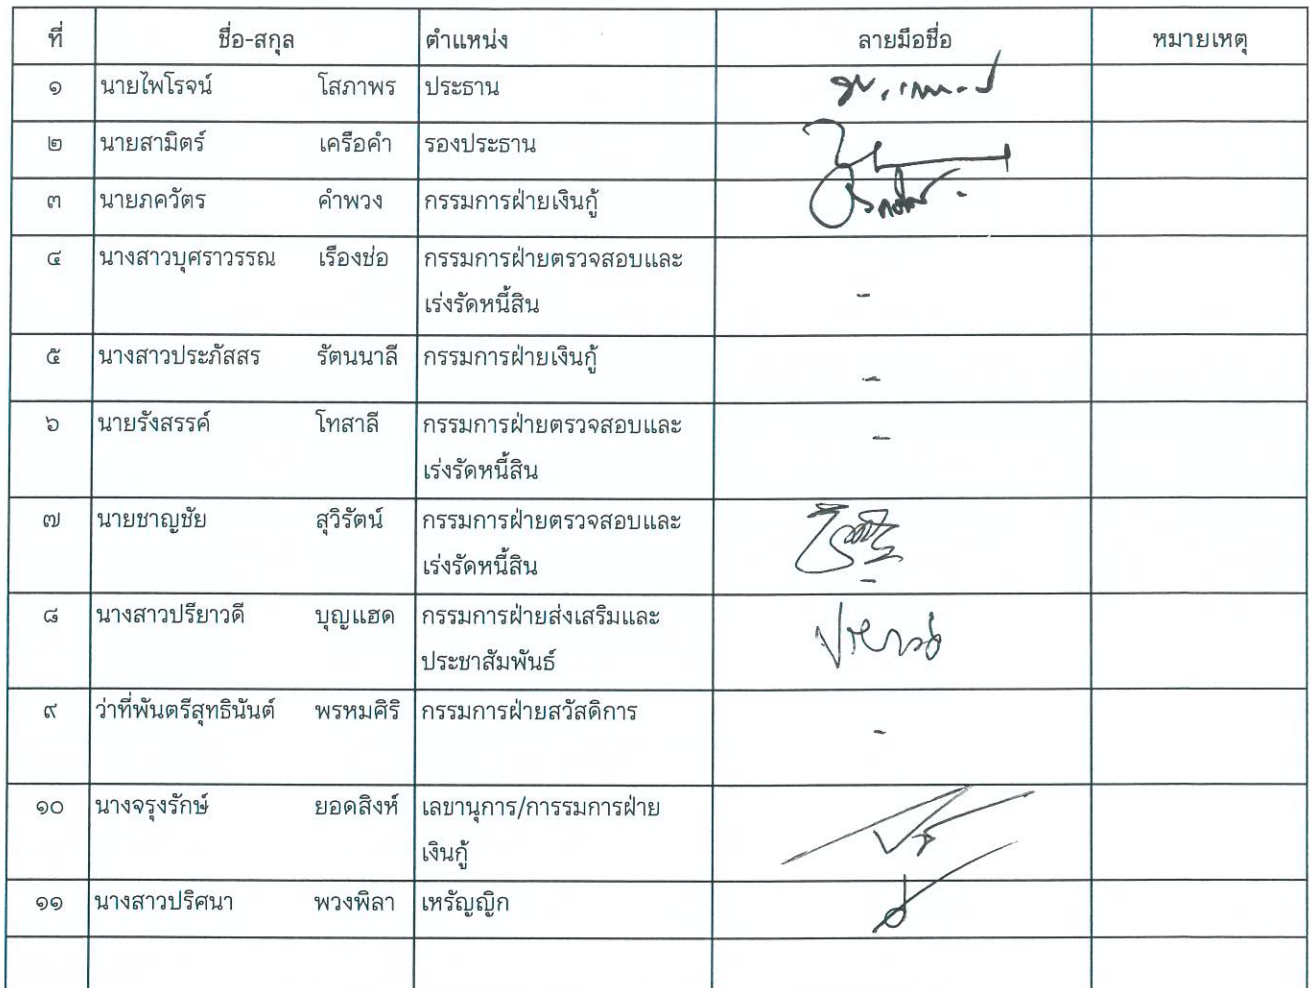 ที่ ชื่อ-สกุล ตำแหน่ง ลายมือชื่อ หมายเหตุ
๑ นายไพโรจน์ โสภาพร ประธาน
๒ นายสามิตร์ เครือคำ รองประธาน
๓ นายภควัตร คำพวง กรรมการฝ่ายเงินกู้
๔ นางสาวบุศราวรรณ เรืองช่อ กรรมการฝ่ายตรวจสอบและ
เร่งรัดหนี้สิน -
๕ นางสาวประภัสสร รัตนนาลี กรรมการฝ่ายเงินกู้
-
๖ นายรังสรรค์ โทสาลี กรรมการฝ่ายตรวจสอบและ -
เร่งรัดหนี้สิน
๗ นายชาญชัย สุวิรัตน์ กรรมการฝ่ายตรวจสอบและ
เร่งรัดหนี้สิน
๘ นางสาวปรียาวดี บุญแฮด กรรมการฝ่ายส่งเสริมและ
ประชาสัมพันธ์
๙ ว่าที่พันตรีสุทธินันต์ พรหมศิริ กรรมการฝ่ายสวัสดิการ -
๑๐ นางจรุงรักษ์ ยอดสิงห์ เลขานุการ/การรมการฝ่าย
เงินกู้
๑๑ นางสาวปริศนา พวงพิลา เหรัญญิก